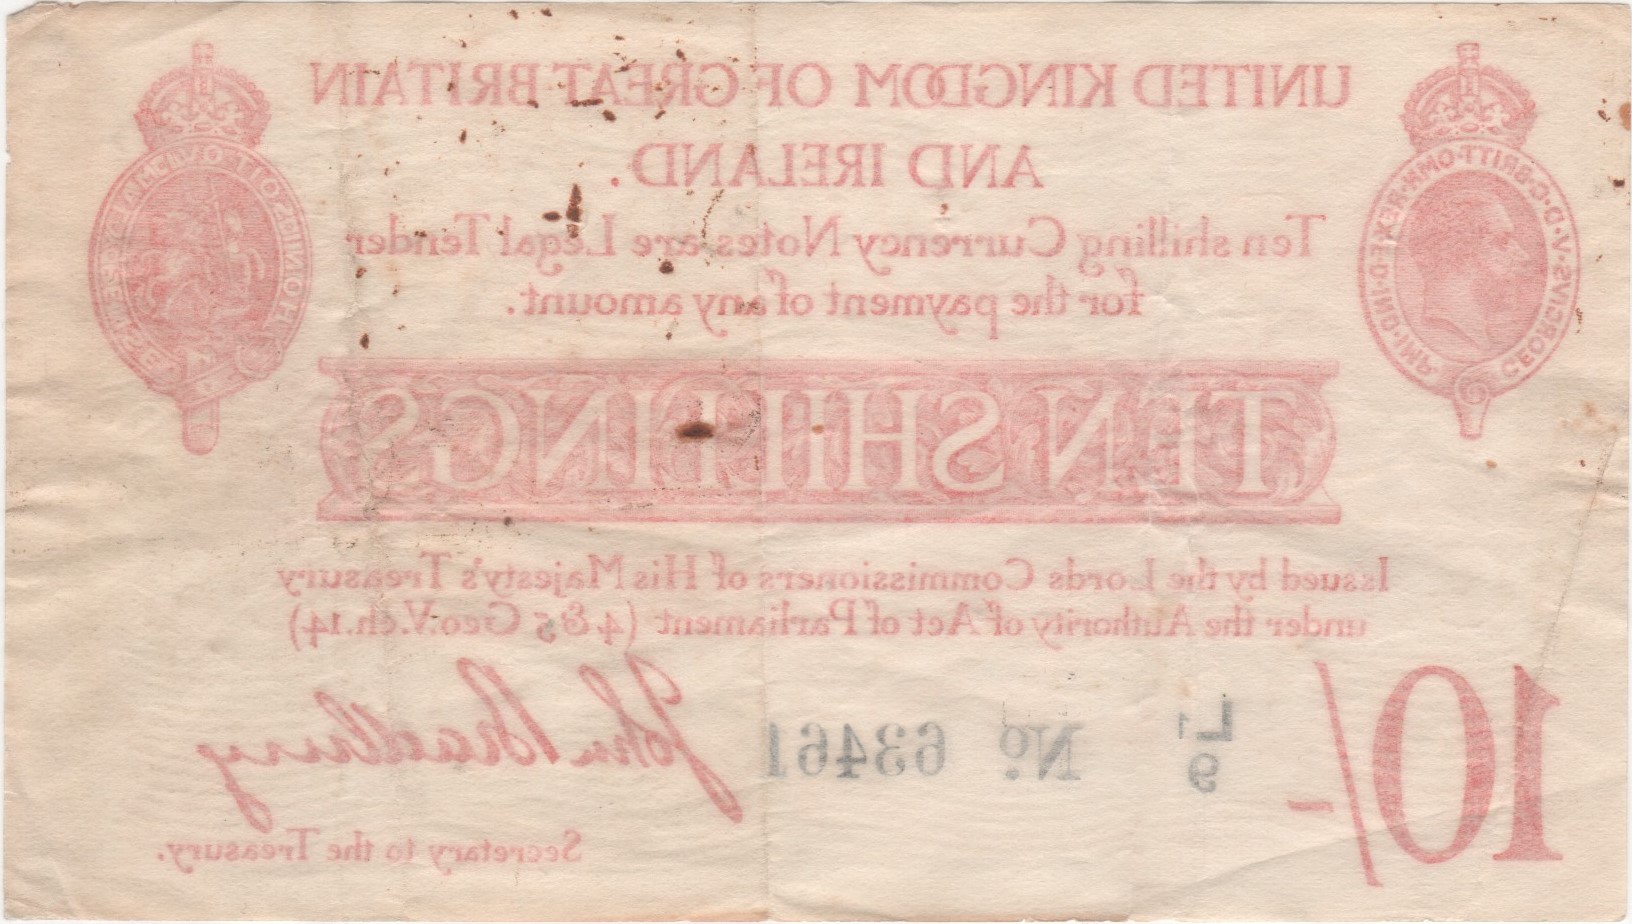 UNITED KINGDOM OF GREAT BRITAIN
AND IRELAND.
Ten shilling Currency Notes are Legal Tender
for the payment of any amount.
GEORGIVS·V·D·G·BRITT:OMN:REX·F·D·IND:IMP:
HONI·SOIT·QUI·MAL·Y·PENSE
TEN SHILLINGS
Issued by the Lords Commissioners of His Majesty's Treasury
under the Authority of Act of Parliament (4 & 5 Geo.V.ch.14)
10/-
L1
9
No. 63461
John Bradbury
Secretary to the Treasury.